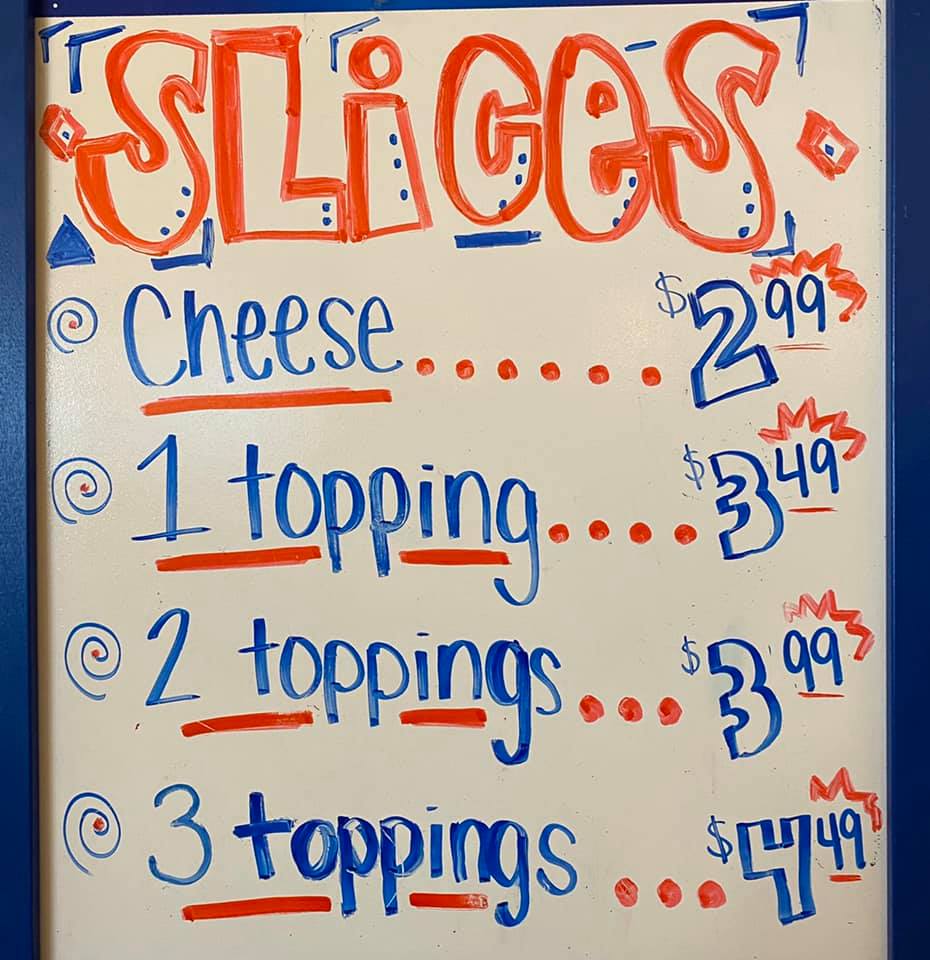 SLiCeS
Cheese...... $2.99
1 topping.... $3.49
2 toppings... $3.99
3 toppings... $4.49